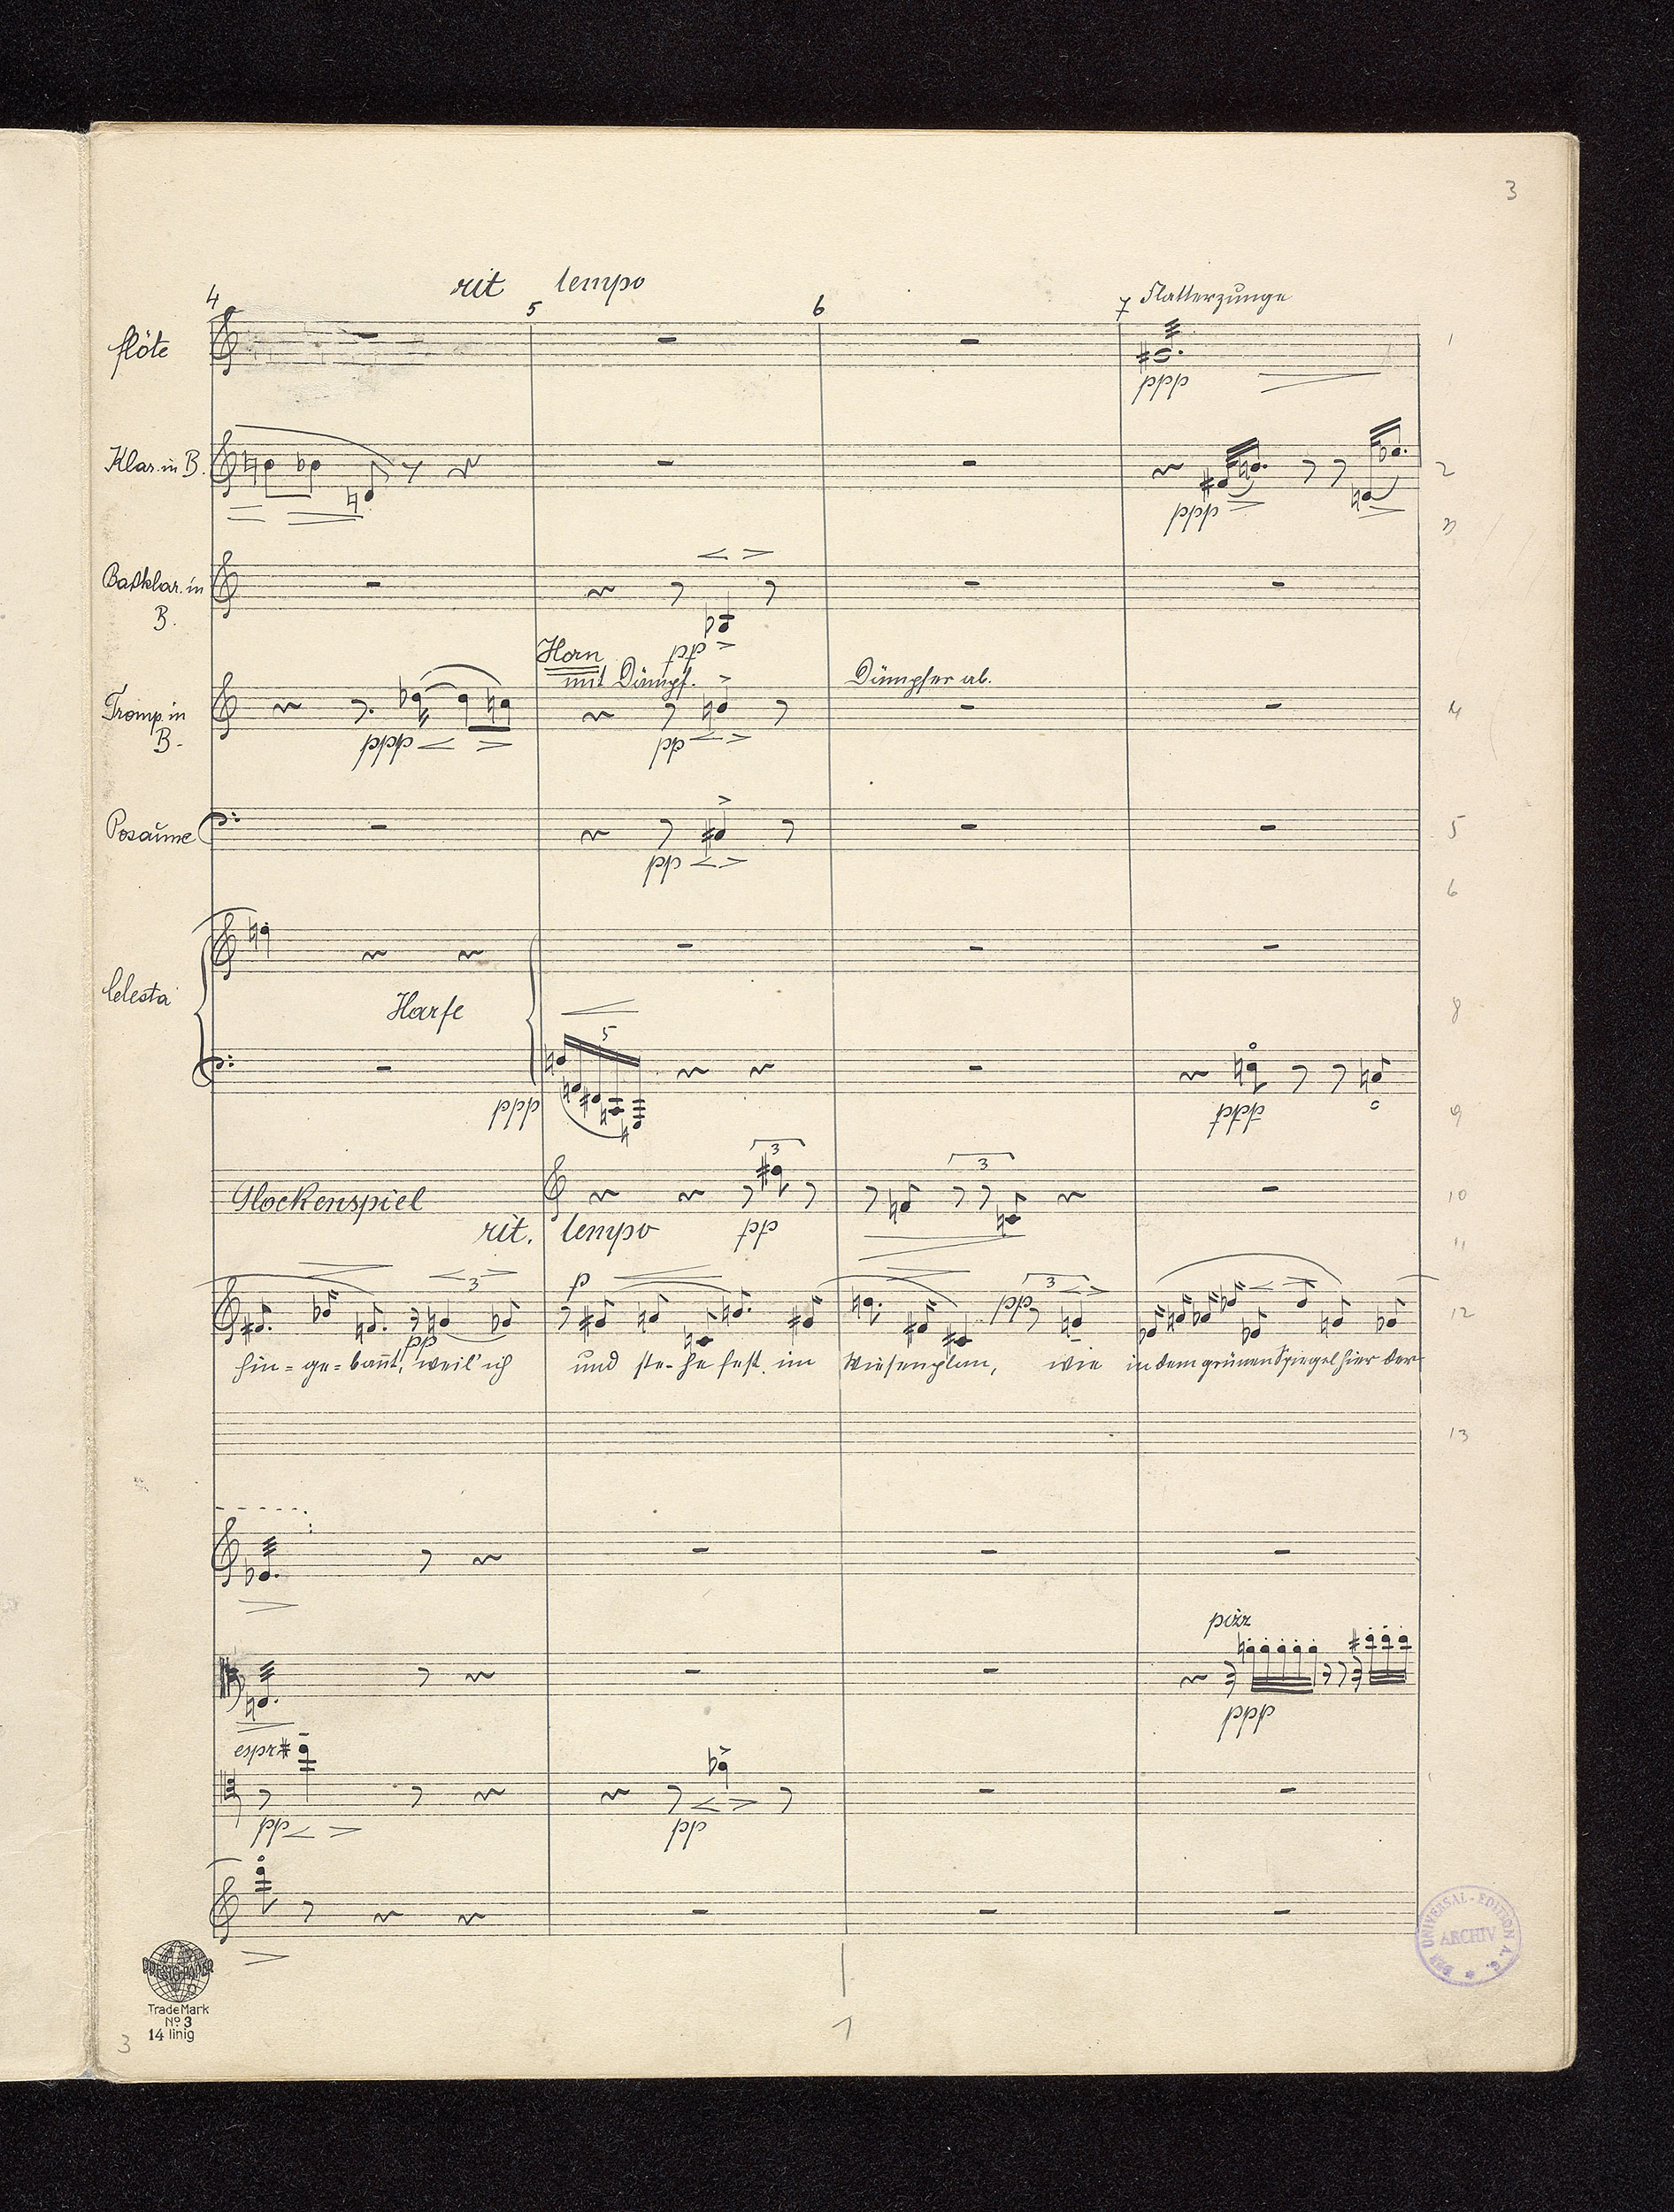 3
rit tempo
4 5 6 7 Flatterzunge
flöte
1
ppp
Klar. in B.
2
ppp
3
Baßklar. in
B.
pp
Horn
mit Dämpf.
Dämpfer ab.
Tromp. in
B.
4
ppp
pp
Posaune
5
pp
6
Celesta
Harfe
8
5
ppp
ppp
9
3
3
Glockenspiel
10
rit. tempo pp
11
3 p 3
pp
pp
12
hin-ge-bannt, weil' ich und ste-he fest im Wiesenplan, wie in dem grünen Spiegel hier der
13
pizz
ppp
espr
pp
pp
DER UNIVERSAL-EDITION A.G.
ARCHIV
Trade Mark
No 3
14 linig
3
1